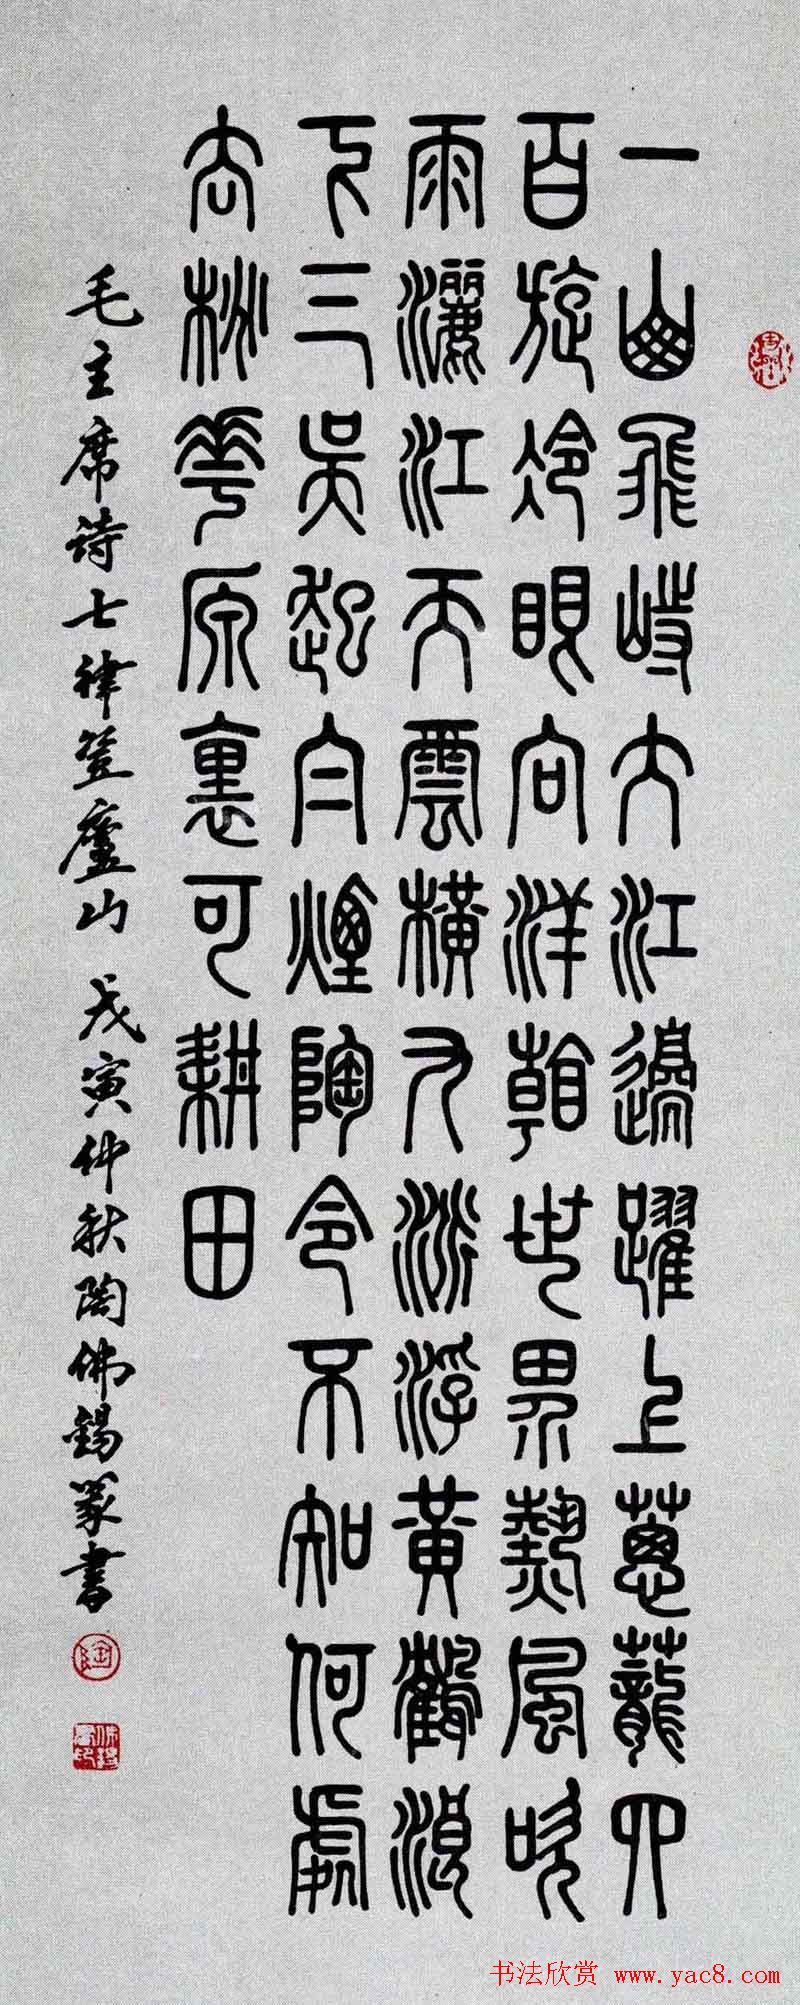 一山飛峙大江邊躍上蔥蘢四
百旋冷眼向洋看世界熱風吹
雨灑江天雲橫九派浮黃鶴浪
下三吳起白煙陶令不知何處
去桃花原裏可耕田
毛主席诗七律登廬山 戊寅仲秋陶佛錫篆書
陶
书法欣赏 www.yac8.com